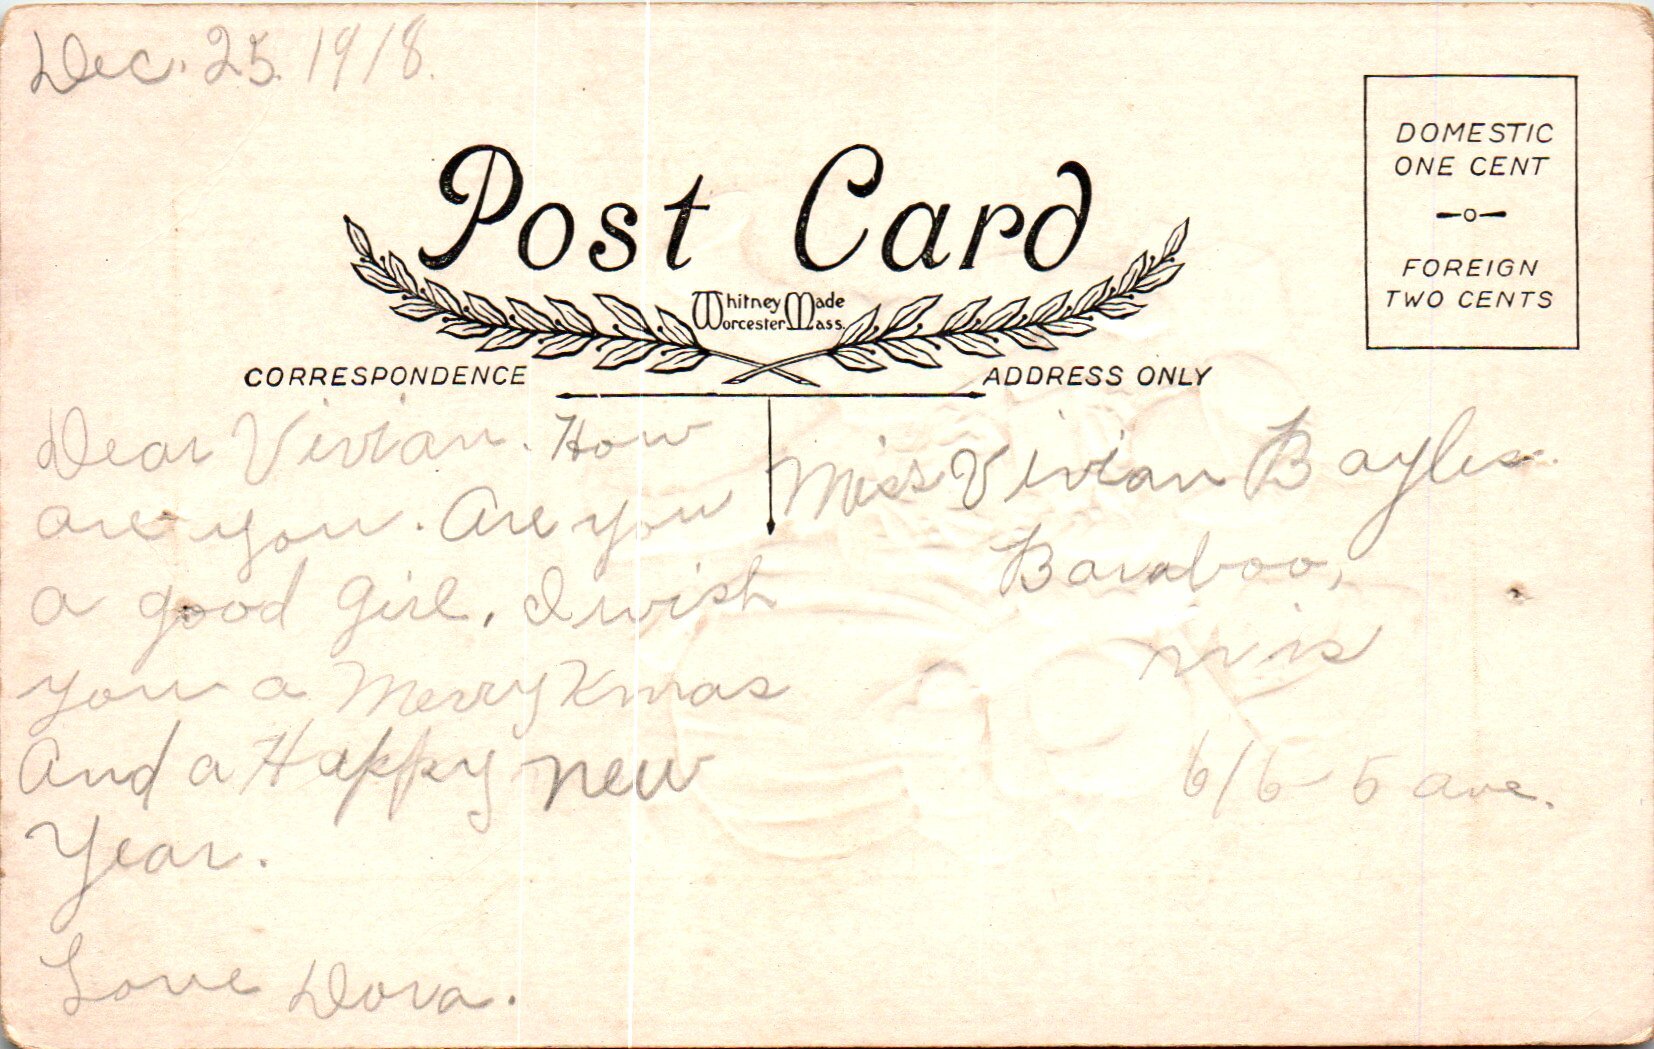 Dec. 25. 1918.
Post Card
Whitney Made
Worcester Mass.
DOMESTIC
ONE CENT
FOREIGN
TWO CENTS
CORRESPONDENCE
ADDRESS ONLY
Dear Vivian. How
are you. Are you
a good Girl, I wish
you a Merry Xmas
And a Happy new
Year.
Love Dora.
Miss Vivian Bayles.
Baraboo,
Wis
616 5 ave.